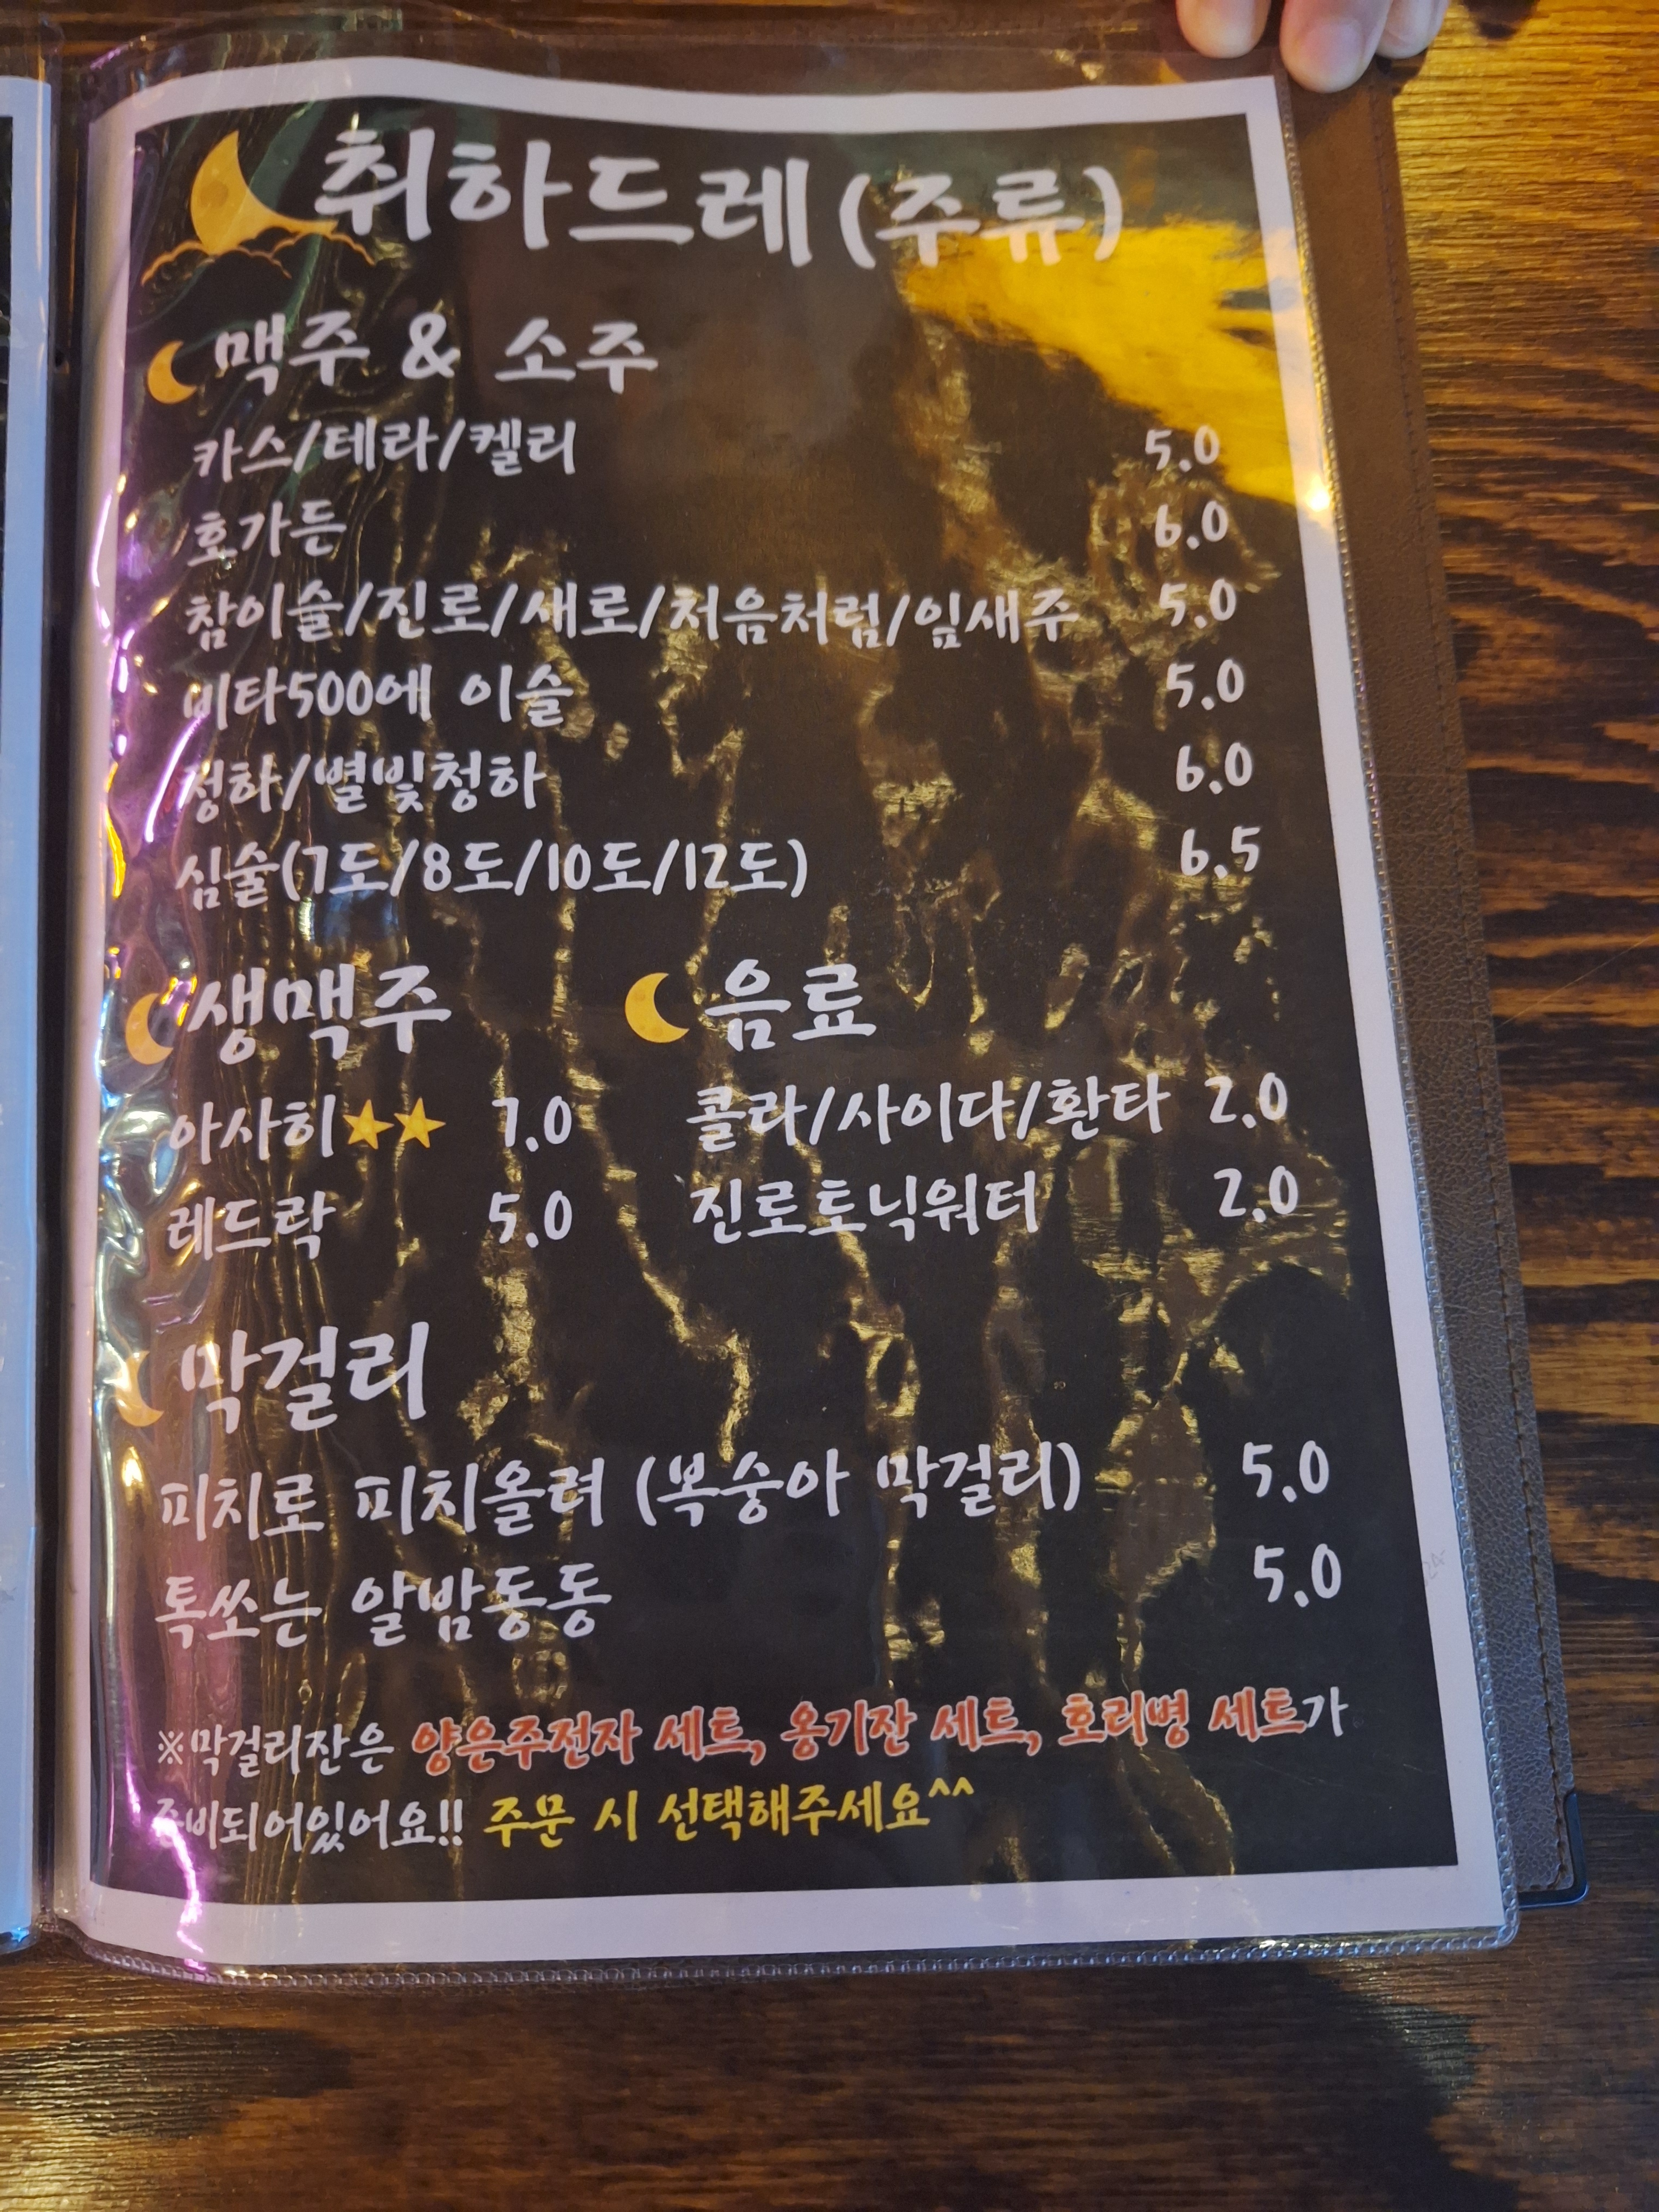 취하드레 (주류)
맥주 & 소주
카스/테라/켈리 5.0
호가든 6.0
참이슬/진로/새로/처음처럼/잎새주 5.0
비타500에 이슬 5.0
청하/별빛청하 6.0
심술(7도/8도/10도/12도) 6.5
생맥주 음료
아사히★★ 7.0 콜라/사이다/환타 2.0
레드락 5.0 진로토닉워터 2.0
막걸리
피치로 피치올려 (복숭아 막걸리) 5.0
톡쏘는 알밤동동 5.0
※막걸리잔은 양은주전자 세트, 옹기잔 세트, 호리병 세트가
준비되어있어요!! 주문 시 선택해주세요^^